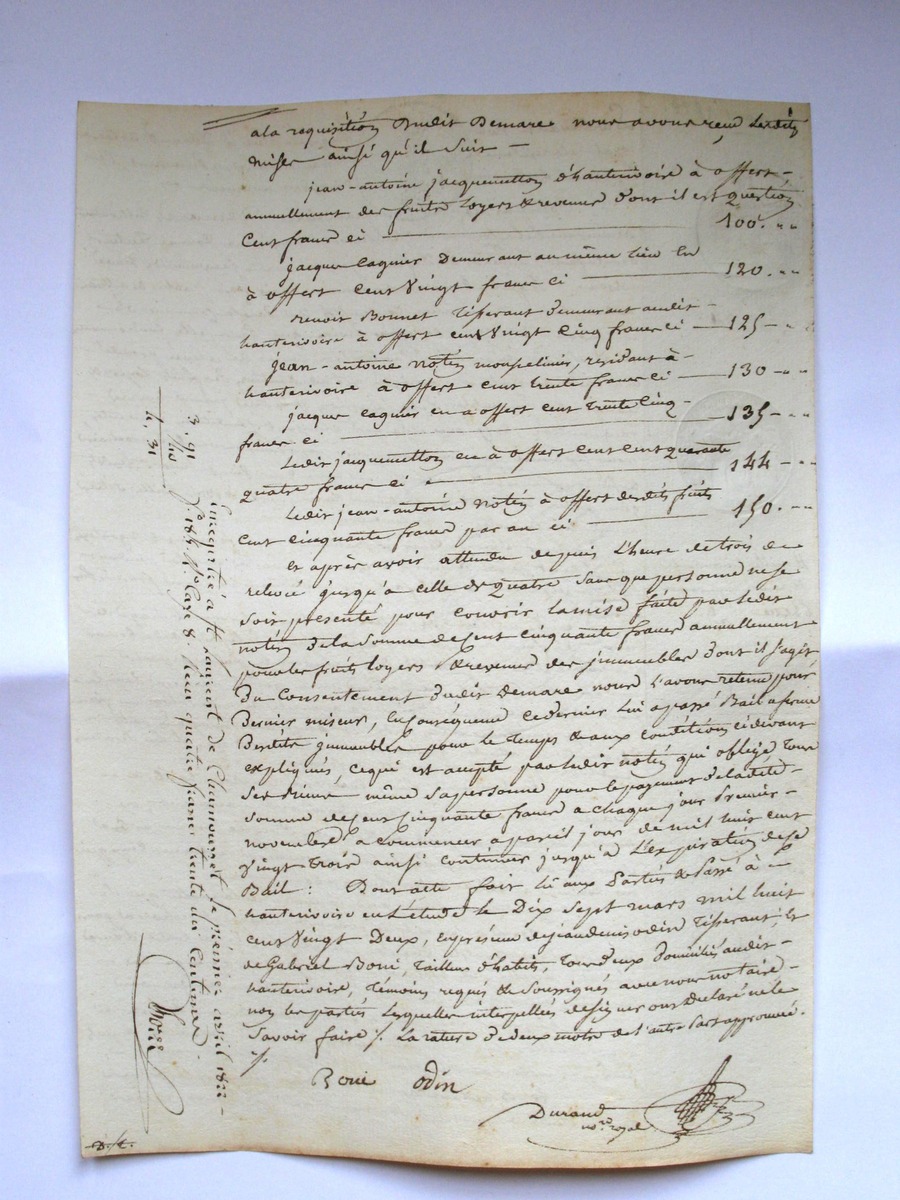 a la requisition dudit Demare nous avons reçu lesdits
mises ainsi qu'il suit —
jean-antoine jacquemetton d'hauterivoire à offert
annuellement des fruits loyers & revenus dont il est question
Cent francs ci — 100. „ „
jacque Cagnier Demeurant au même lieu en
à offert Cent Vingt francs ci — 120. „ „
Benoit Bonnet Tisserant demeurant audit
hauterivoire à offert cent Vingt Cinq francs ci — 125 - „ „
jean-antoine notin mousselinier, residant à
hauterivoire à offert cent trente francs ci — 130 - „ „
jacque Cagnier en a offert cent Trente Cinq
francs ci — 135 - „ „
Ledit jacquemetton en à offert Cent Cent quarante
quatre francs ci — 144 - „ „
Ledit jean-antoine Notin à offert desdits fruits
Cent Cinquante francs par an ci — 150. „ „
Et après avoir attendu depuis L'heure de trois de
relevée jusqu'à celle de quatre sans que personne ne se
soit présenté pour couvrir la mise faite par ledit
notin de la somme de Cent Cinquante francs annuellement
pour les fruits loyers & revenus des jmmeubles dont il s'agit
Du Consentement dudit Demare nous l'avons retenu pour
Dernier miseur, En Conséquence ce dernier lui a passé Bail a ferme
Desdits jmmeubles pour le Temps & aux conditions cidevant
expliqués, ce qui est accepté par ledit notin qui oblige tous
ses biens même sa personne pour le payement de ladite
somme de Cent Cinquante francs a chaque jour premier
novembre a commencer a pareil jour de mil huit cent
Vingt trois ainsi continuer jusqu'à L'expiration de ce
Bail : Dont acte fait lu aux Parties & Passé à
hauterivoire en L'étude le Dix sept mars mil huit
cent Vingt Deux, En présence de jean denis odin Tisserant, Et
de Gabriel Boni, Tailleur d'habits, Tous deux Domiciliés audit
hauterivoire, Témoins requis & soussignés avec nous notaire
non les parties Lesquelles interpellés de signer ont declaré ne le
savoir faire /. La rature de deux mots de l'autre part approuvée.
/.
Boni odin
Durand
no.re royal
3, 91
4, 31
Enregistré à St Laurent de Chamousset le premier avril 1822
Case 8. Reçu quatre francs trente un Centimes.